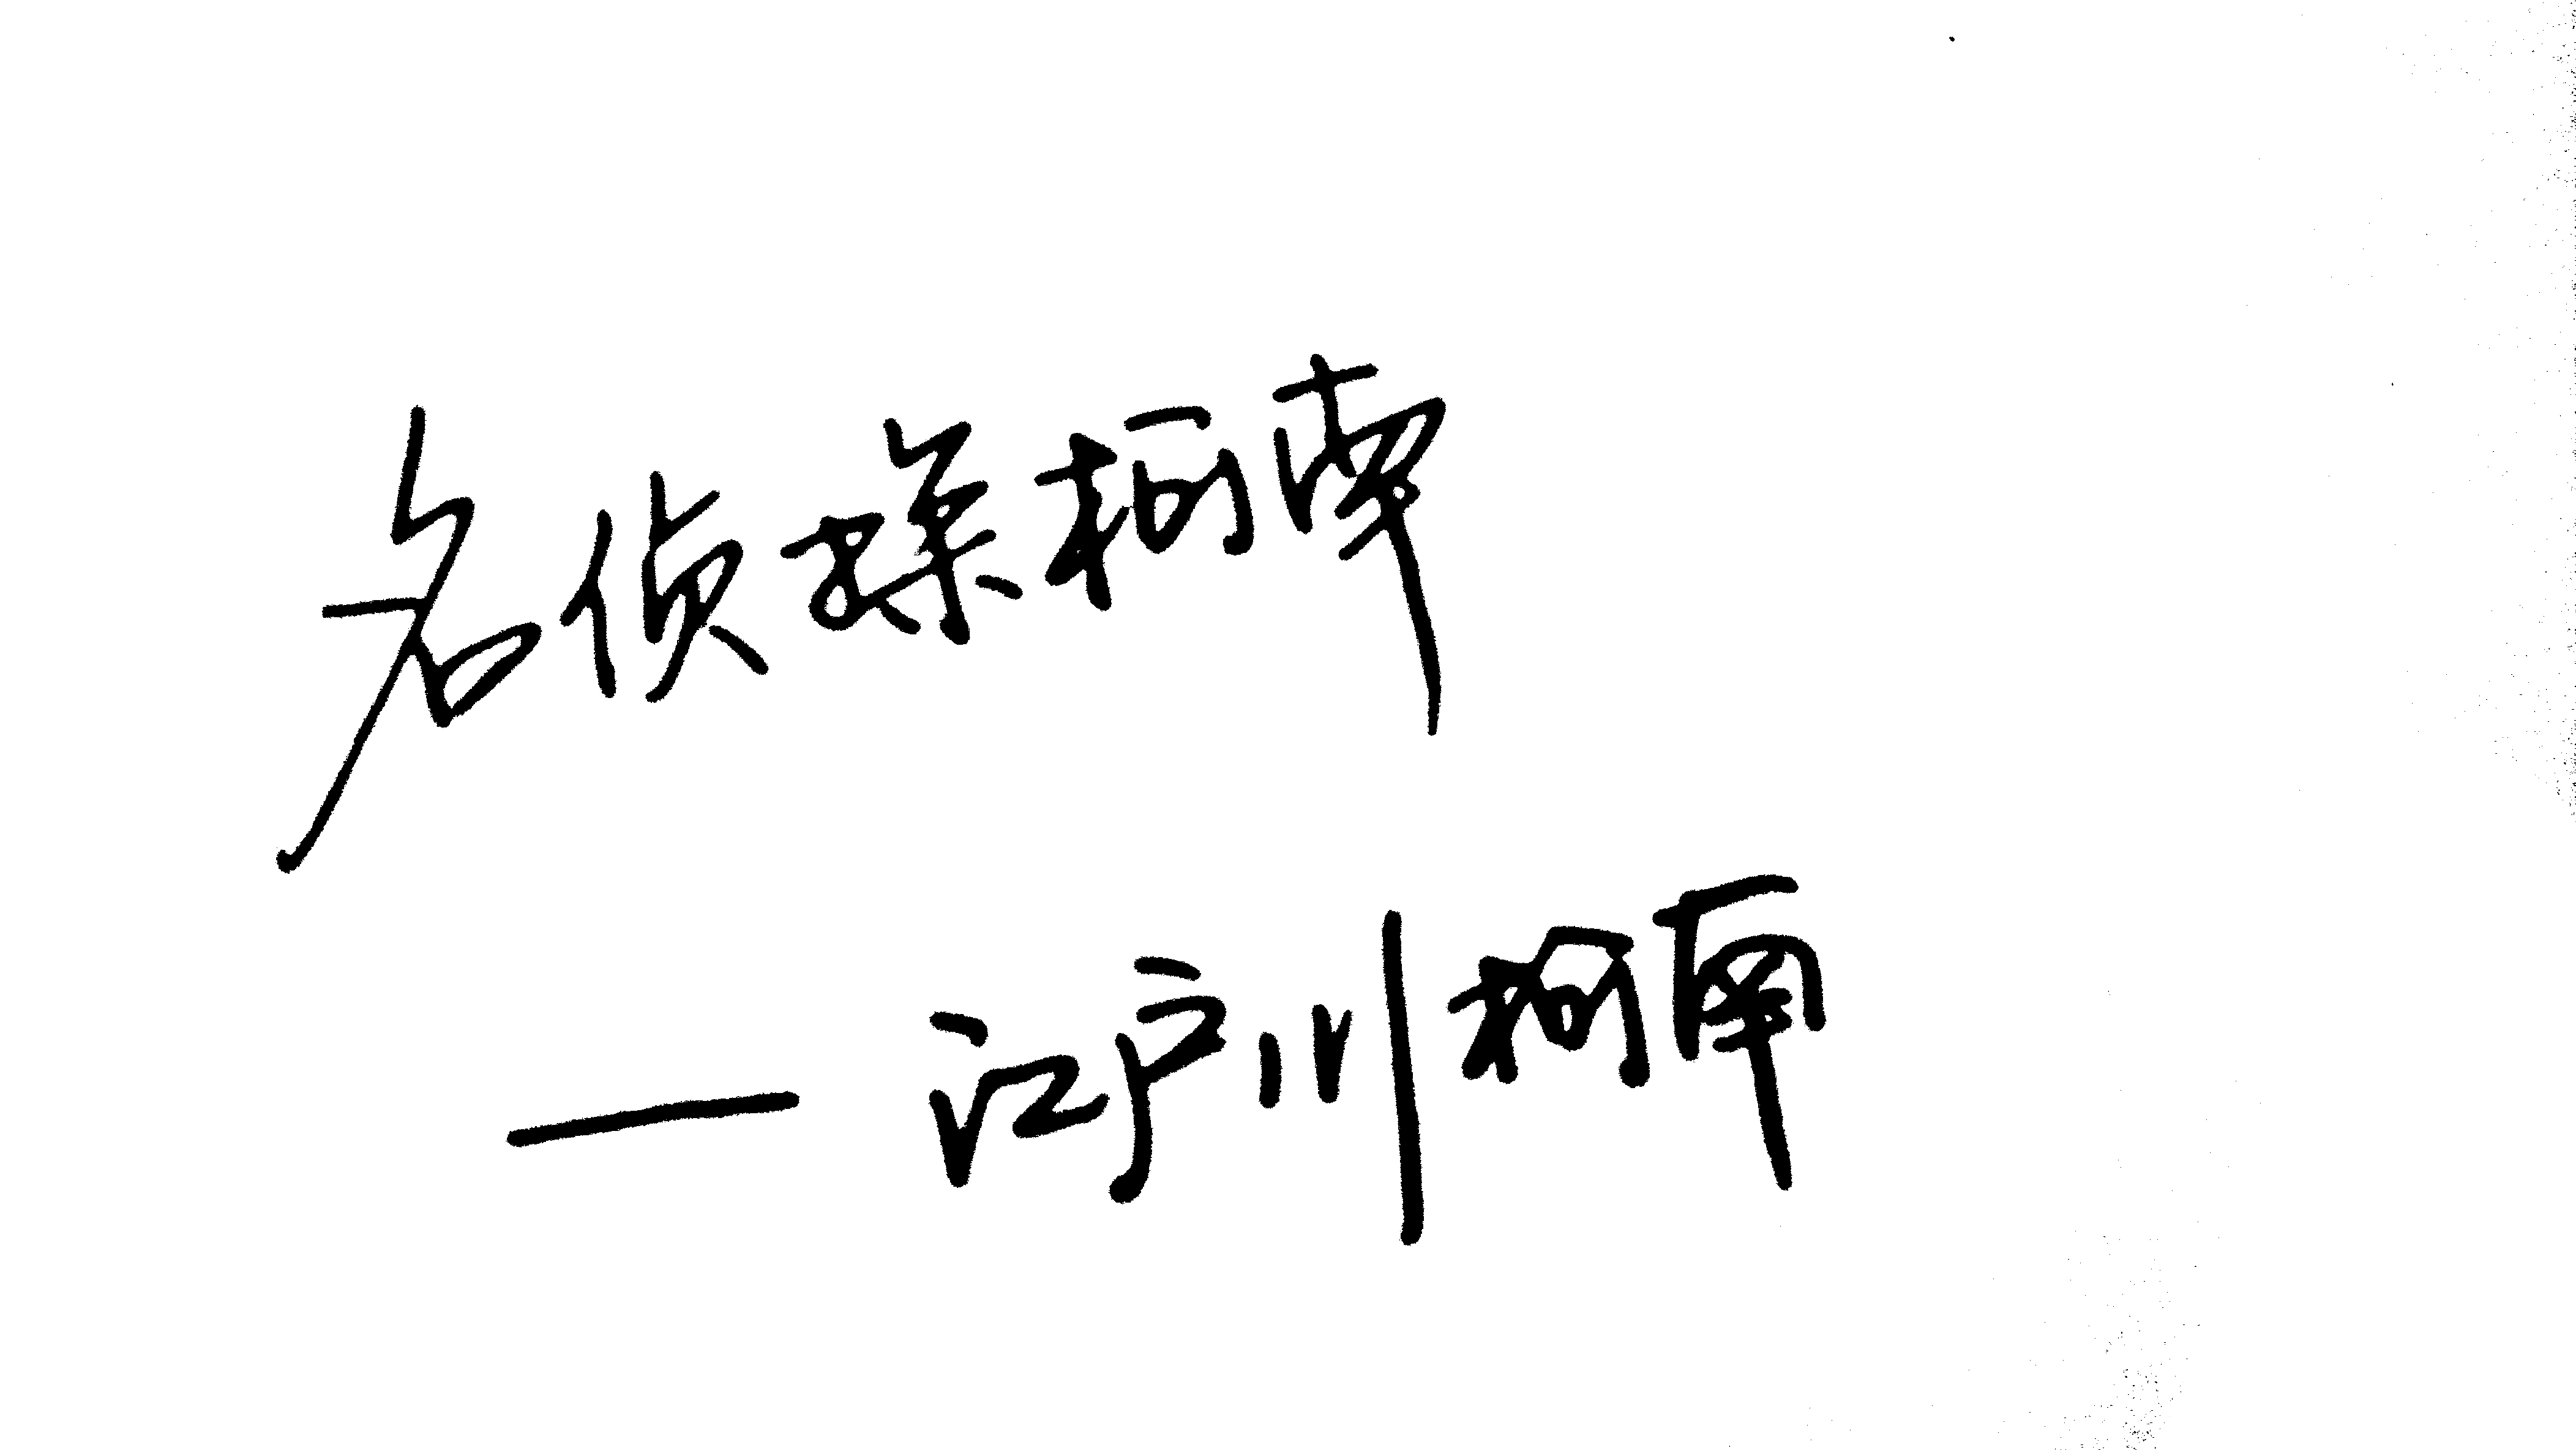 名侦探柯南
— 江户川柯南